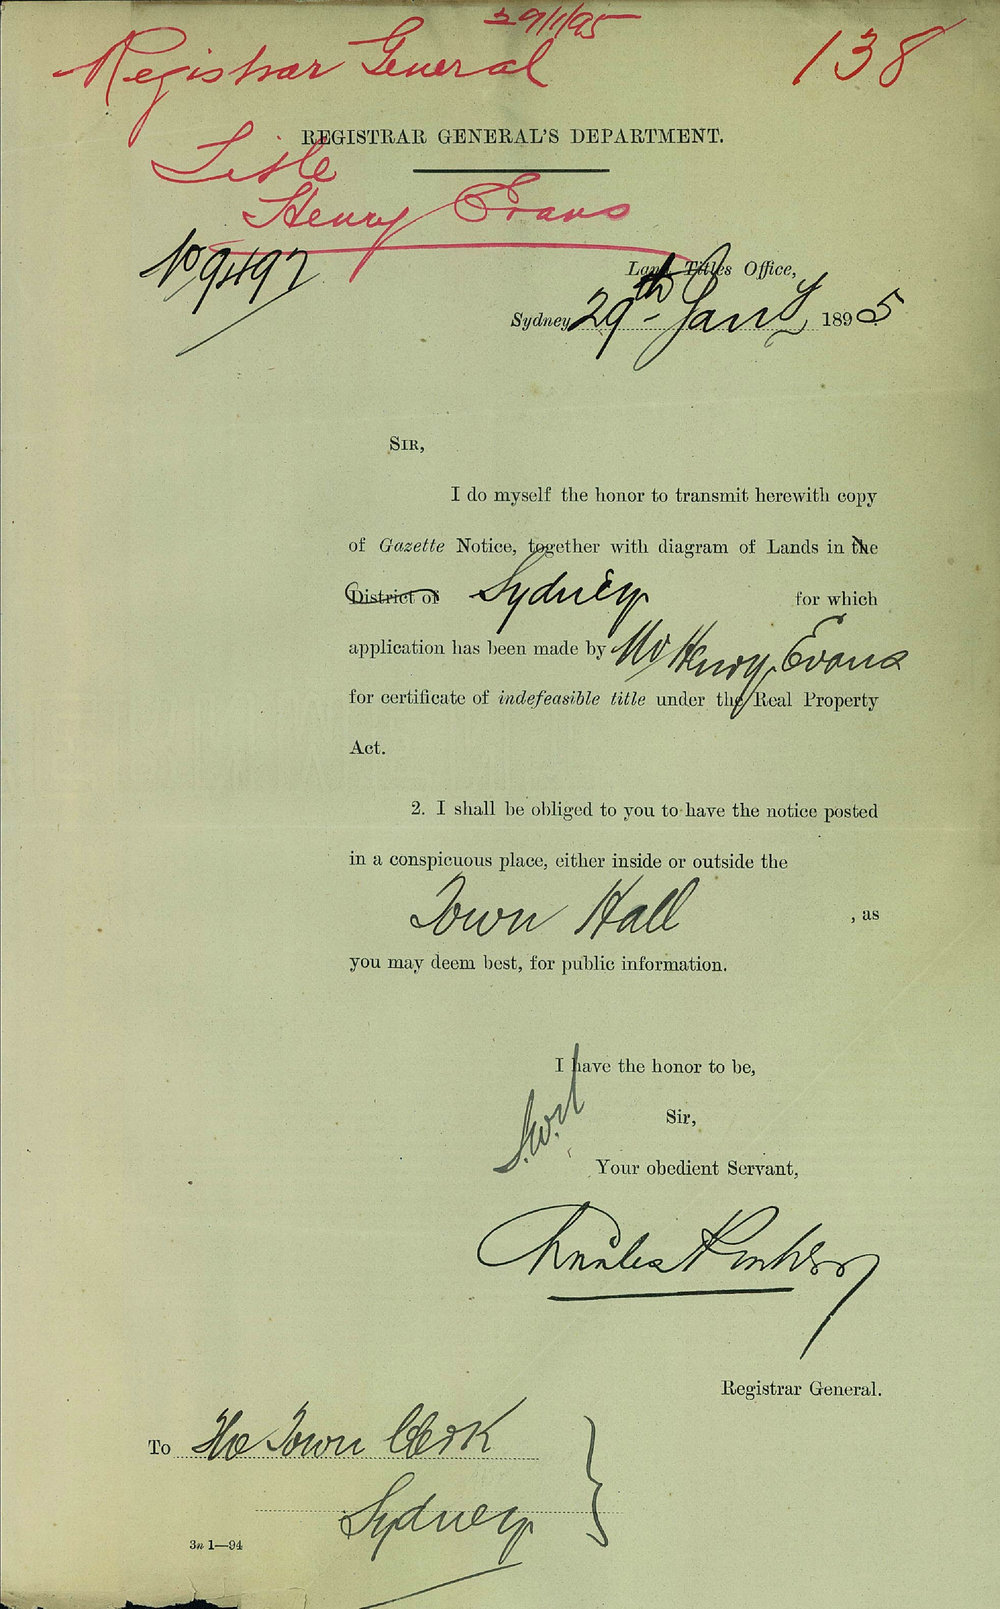 29/1/95
Registrar General
138
REGISTRAR GENERAL'S DEPARTMENT.
Title
Henry Evans
No 9497
Land Titles Office,
Sydney 29th Jany 1895
SIR,
I do myself the honor to transmit herewith copy
of Gazette Notice, together with diagram of Lands in the
District of Sydney for which
application has been made by Mr Henry Evans
for certificate of indefeasible title under the Real Property
Act.
2. I shall be obliged to you to have the notice posted
in a conspicuous place, either inside or outside the
Town Hall , as
you may deem best, for public information.
I have the honor to be,
Sir,
Your obedient Servant,
Charles
Registrar General.
To The Town Clerk
Sydney
3n 1—94